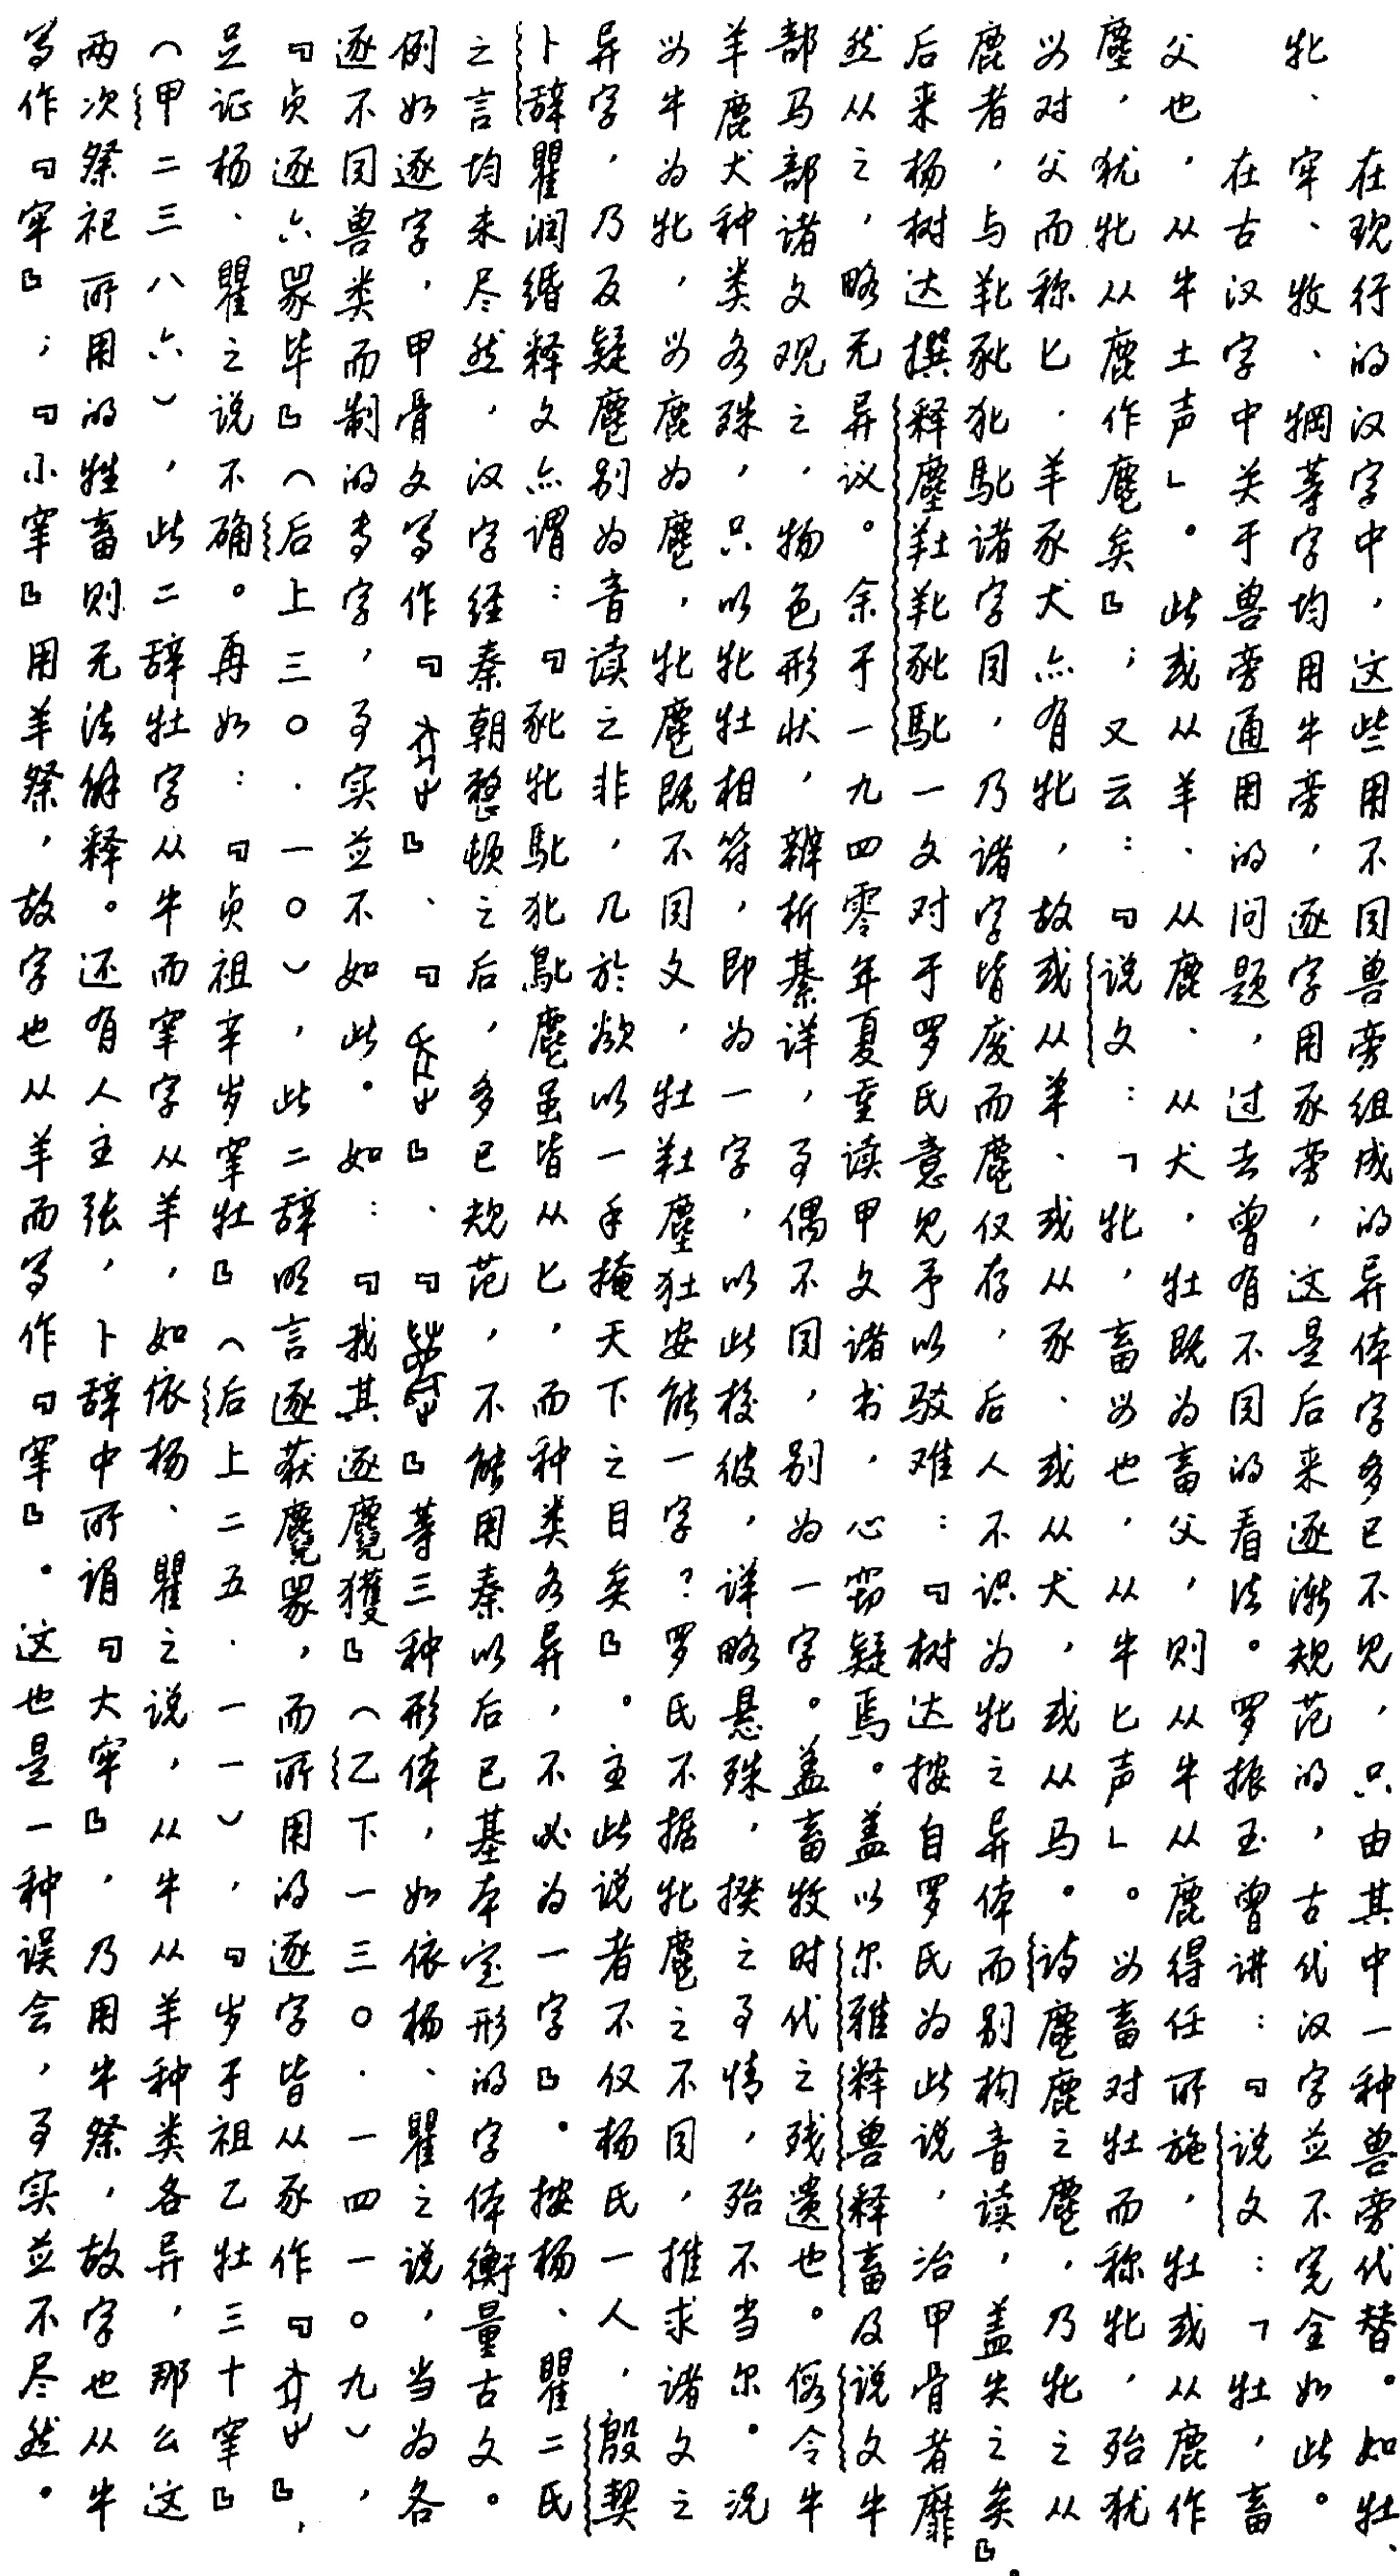 在现行的汉字中，这些用不同兽旁组成的异体字多已不见，只由其中一种兽旁代替。如牡、
牝、牢、牧、犅等字均用牛旁，逐字用豕旁，这是后来逐渐规范的，古代汉字並不完全如此。
在古汉字中关于兽旁通用的问题，过去曾有不同的看法。罗振玉曾讲：『说文：「牡，畜
父也，从牛土声」。此或从羊、从鹿、从犬，牡既为畜父，则从牛从鹿得任所施，牡或从鹿作
𪋻，犹牝从鹿作麀矣』；又云：『说文：「牝，畜母也，从牛匕声」。母畜对牡而称牝，殆犹
母对父而称匕．羊豕犬亦有牝，故或从羊、或从豕、或从犬，或从马。诗麀鹿之麀，乃牝之从
鹿者，与𦍒豝犯馳诸字同，乃诸字皆废而麀仅存，后人不识为牝之异体而别构音读，盖失之矣』。
后来杨树达撰释𪋻𦍒豝馳一文对于罗氏意见予以驳难：『树达按自罗氏为此说，治甲骨者靡
然从之，略无异议。余于一九四零年夏重读甲文诸书，心窃疑焉。盖以尔雅释兽释畜及说文牛
部马部诸文观之，物色形状，辨析綦详，事偶不同，别为一字。盖畜牧时代之残遗也。假令牛
羊鹿犬种类各殊，只以牝牡相符，即为一字，以此校彼，详略悬殊，揆之事情，殆不当尔。况
母牛为牝，母鹿为麀，牝麀既不同文，牡𪋻安能一字？罗氏不据牝麀之不同，推求诸文之
异字，乃反疑麀别为音读之非，几於欲以一手掩天下之目矣』。主此说者不仅杨氏一人，殷契
卜辞瞿润缗释文亦谓：『牝麀虽皆从匕，而种类各异，不必为一字』。按杨、瞿二氏
之言均未尽然，汉字经秦朝整顿之后，多已规范，不能用秦以后已基本定形的字体衡量古文。
例如逐字，甲骨文写作『』、『』、『』等三种形体，如依杨、瞿之说，当为各
逐不同兽类而制的专字，事实並不如此。如：『我其逐麑獲』（乙下一三〇．一四一〇九），
『贞逐六毕』（后上三〇．一〇），此二辞明言逐获麑，而所用的逐字皆从豕作『』，
足证杨、瞿之说不确。再如：『贞祖辛岁𫳅牡』（后上二五．一一），『岁于祖乙牡三十𫳅』
（甲二三八六），此二辞牡字从牛而𫳅字从羊，如依杨、瞿之说，从牛从羊种类各异，那么这
两次祭祀所用的牲畜则无法解释。还有人主张，卜辞中所谓『大牢』，乃用牛祭，故字也从牛
写作『牢』；『小𫳅』用羊祭，故字也从羊而写作『𫳅』。这也是一种误会，事实並不尽然。